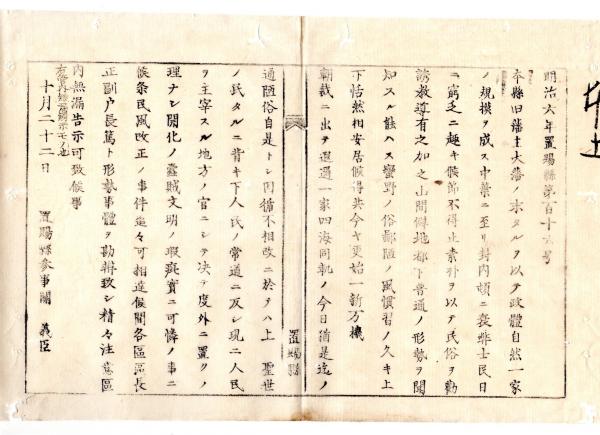 明治六年置賜縣第百十六号
本縣旧藩士大藩ノ末タルヲ以テ政體自然一家
ノ規模ヲ成ス中葉ニ至リ封内頓ニ衰耗士民日
ニ窮乏ニ趣キ候節不得止素朴ヲ以テ民俗ヲ勧
誘教導有之加之山間僻地都下普通ノ形勢ヲ聞
知スル能ハス蠻野ノ俗鄙陋ノ風慣習ノ久キ上
下恬然相安居候得共今ヤ更始一新万機
朝裁ニ出ヲ遐邇一家四海同軌ノ今日猶是迄ノ
置賜縣
通陋俗自是トシ因循不相改ニ於テハ上 聖世
ノ民タルニ背キ下人民ノ常道ニ反シ現ニ人民
ヲ主宰スル地方ノ官ニシテ決テ度外ニ置クノ
理ナシ開化ノ蠧賊文明ノ瑕疵實ニ可憐ノ事ニ
候条民風改正ノ事件追々可相達候間各區區長
正副戸長篤ト形勢事體ヲ勘辨致シ精々注意區
内無漏告示可致候事
右管内
十月二十二日
置賜縣参事關 義臣